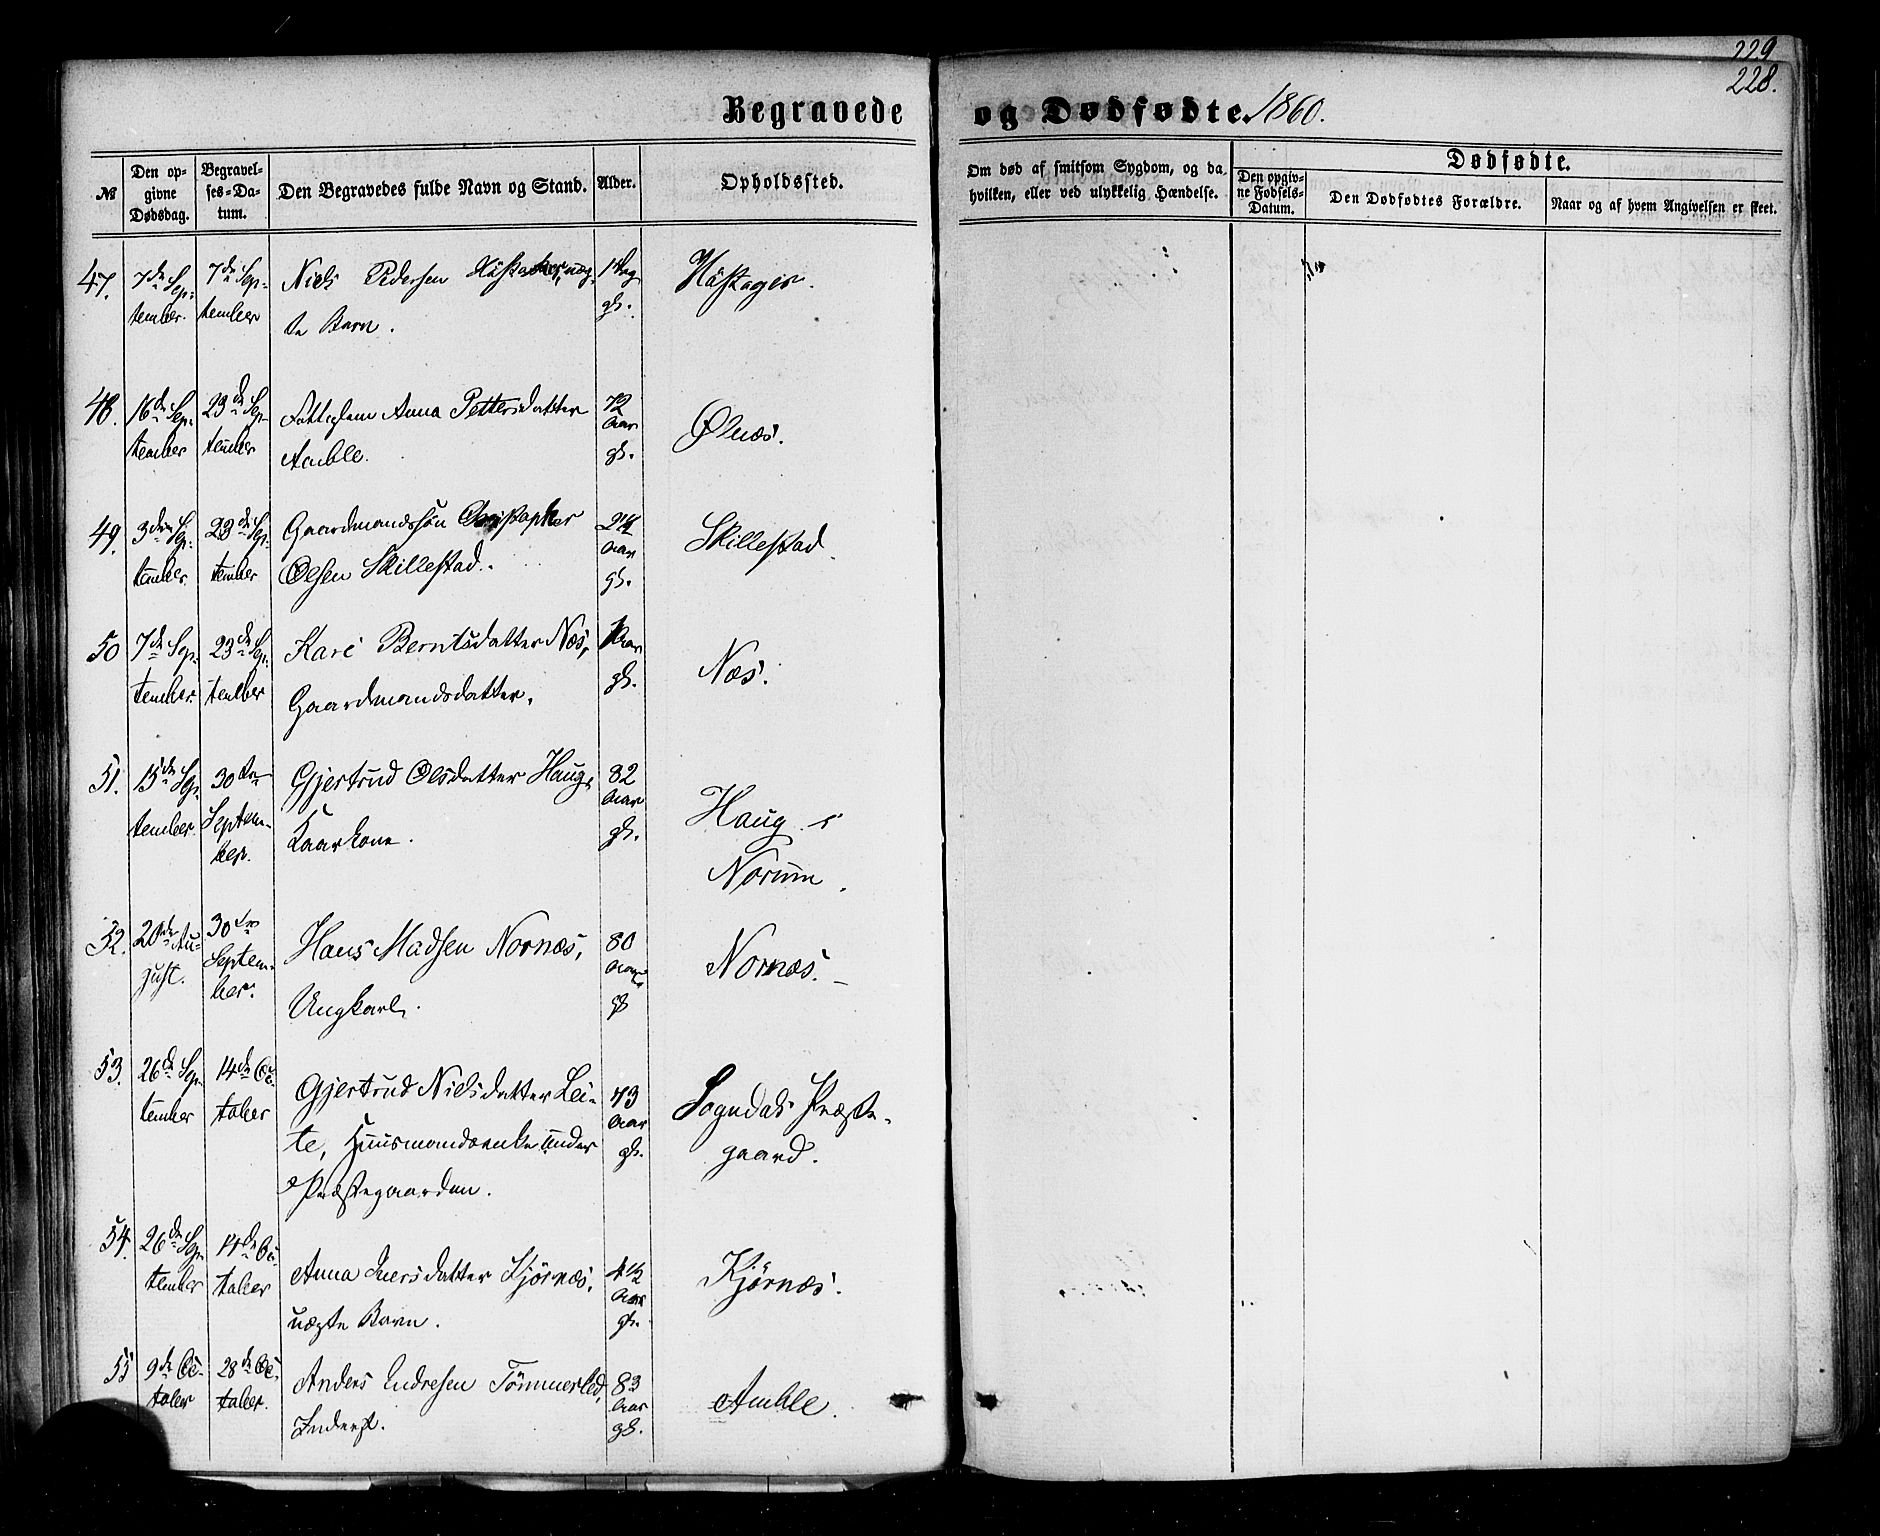 229
228.
Begravede og Dødfødte. 1860.
№
Den op-
givne
Dødsdag.
Begravel-
ses-Da-
tum.
Den Begravedes fulde Navn og Stand.
Alder.
Opholdssted.
Om død af smitsom Sygdom, og da
hvilken, eller ved ulykkelig Hændelse.
Dødfødte.
Den opgiv-
ne Fødsels-
Datum.
Den Dødfødtes Forældre.
Naar og af hvem Angivelsen er skeet.
47.
7de Sep-
tember.
7de Sep-
tember
Niels Pedersen uæg-
te Barn.
1 Dag
gl.
48.
16de Sep-
tember
23de Sep-
tember
Fattiglem Anna Pettersdatter
Amble.
72
Aar
gl.
Ølnæs.
49.
3die Sep-
tember.
23de Sep-
tember
Gaardmandssøn Christopher
Olsen Skillestad.
Aar
gl.
Skillestad
50
7de Sep-
tember.
23de Sep-
tember
Kari Berntsdatter Næs,
Gaardmandsdatter.
Aar
gl.
Næs.
51.
15de Sep-
tember
30te
Septem-
ber.
Gjertrud Olsdatter Haug,
Kaarkone.
82
Aar
gl.
Haug i
Norum.
52.
20de Au-
gust.
30te
Septem-
ber.
Hans Madsen Nornæs,
Ungkarl.
80
Aar
gl
Nornæs.
53.
26de Sep-
tember
14de Oc-
tober
Gjertrud Nielsdatter Lei-
te, Huusmandsenke under
Præstegaarden.
73
Aar
gl.
Sogndals Præste-
gaard.
54.
26de Sep-
tember
14de Oc-
tober
Anna Iversdatter Kjørnæs,
uægte Barn.
4½
Aar
gl.
Kjørnæs.
55
9de Oc-
tober
28de Oc-
tober.
Anders Endresen Tømmerlid,
Inderst.
83
Aar
gl.
Amble.